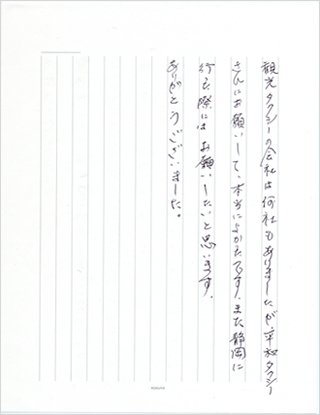 観光タクシーの会社は何社もありましたが、平和タクシー
さんにお願いして、本当によかたです。また静岡に
行く際にはお願いしたいと思います。
ありがとうございました。